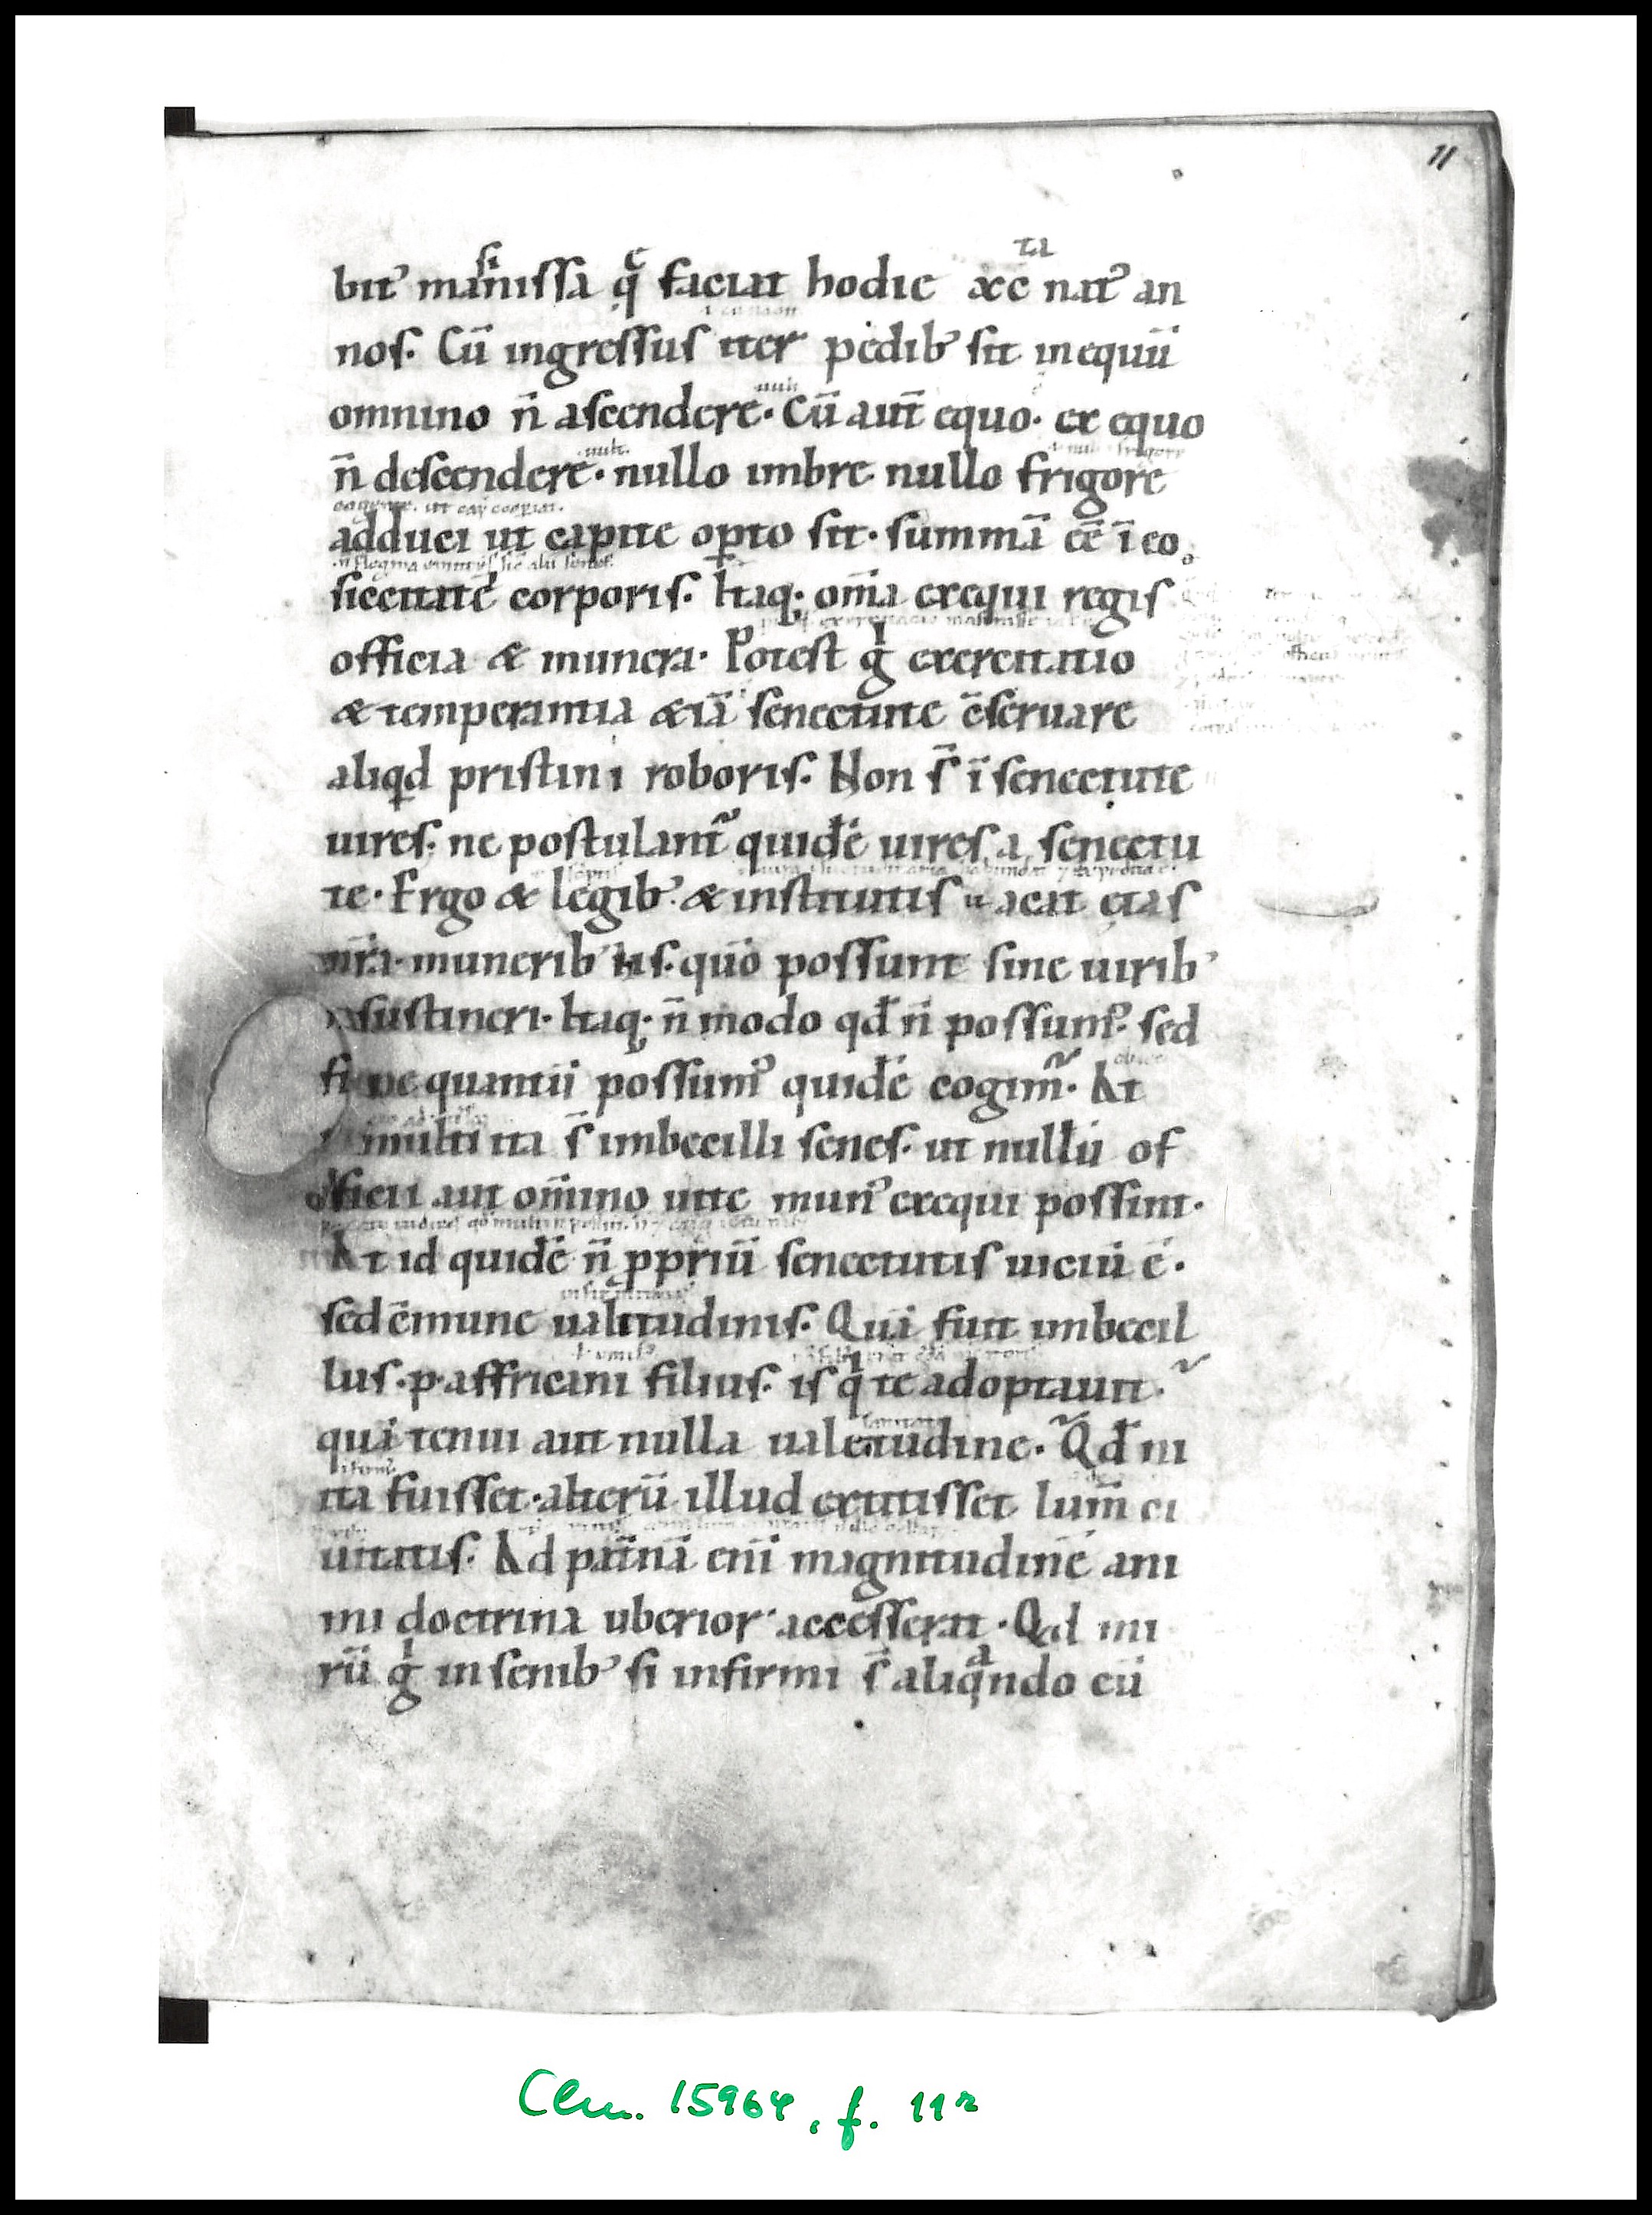 11
bit᾽ masinissa q̨ faciat hodie xc̄ ta nat᾽ an
nos. Cū ingressus iter pedib᾽ sit in equū
omnino n̄ ascendere. Cū aut̄ equo. ex equo
n̄ descendere. nullo imbre nullo frigore
adduci ut capite op̱to sit. summā eē ī eo
siccitatē corporis. Itaq; om̄ia exequi regis
officia & munera. Potest g̍ exercitatio
& temperantia &iā senectute c̄seruare
aliqd pristini roboris. Non s̄ ī senectute
uires. ne postulant᾽ quidē uires a senectu
te. Ergo & legib᾽ & institutis uacat ętas
nr̄a. munerib᾽ his. quō possunt sine uirib᾽
sustineri. Itaq; n̄ modo qđ n̄ possum᾽. sed
ne quantū possum᾽ quidē cogim᷑. At
multi ita s̄ imbecilli senes. ut nullū of
ficii aut om̄ino uite mun᾽ exequi possint.
At id quidē n̄ ppriū senectutis uiciū ē.
sed c̄mune ualitudinis. Quā fuit imbecil
lus. p. affricani filius. is qͥ te adoptauit.
quā tenui aut nulla ualetudine. Qđ ni
ita fuisset. alterū illud extitisset lum̄ ci
uitatis. Ad pat̄nā eni magnitudinē ani
mi doctrina uberior accesserat. Qd mi
rū g̍ in senib᾽ si infirmi s̄ aliqͣndo cū
Clm. 15964, f. 11r